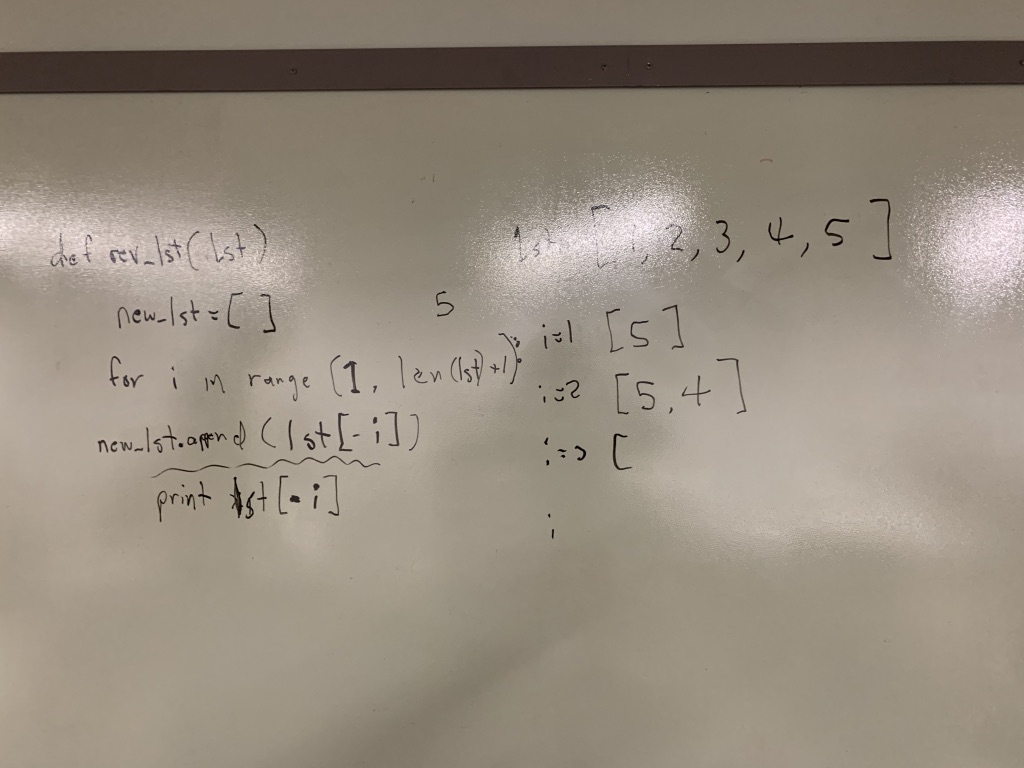 def rev_lst(lst)
new_lst = [ ]
for i in range (1, len(lst)+1):
new_lst.append(lst[-i])
print lst[-i]
lst [1, 2, 3, 4, 5]
5
i=1 [5]
i=2 [5,4]
i= [
i